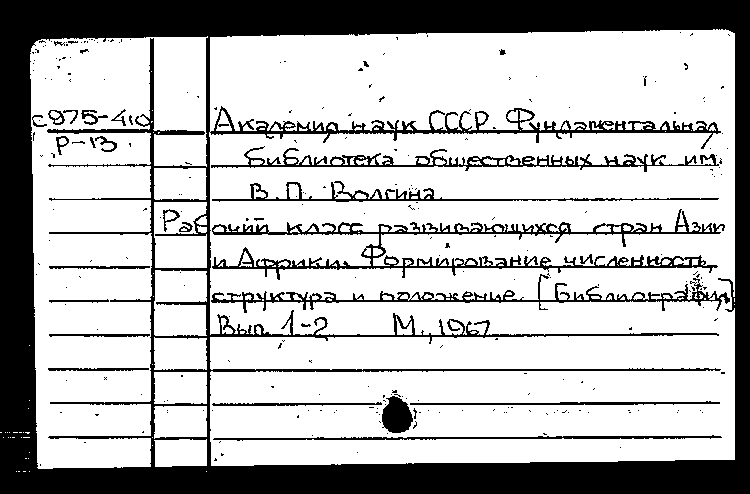 с975-410
Р-13.
Академия наук СССР. Фундаментальная
библиотека общественных наук им.
В.П. Волгина.
Рабочий класс развивающихся стран Азии
и Африки. Формирование, численность,
структура и положение. [Библиография]
Вып. 1-2 М., 1967.